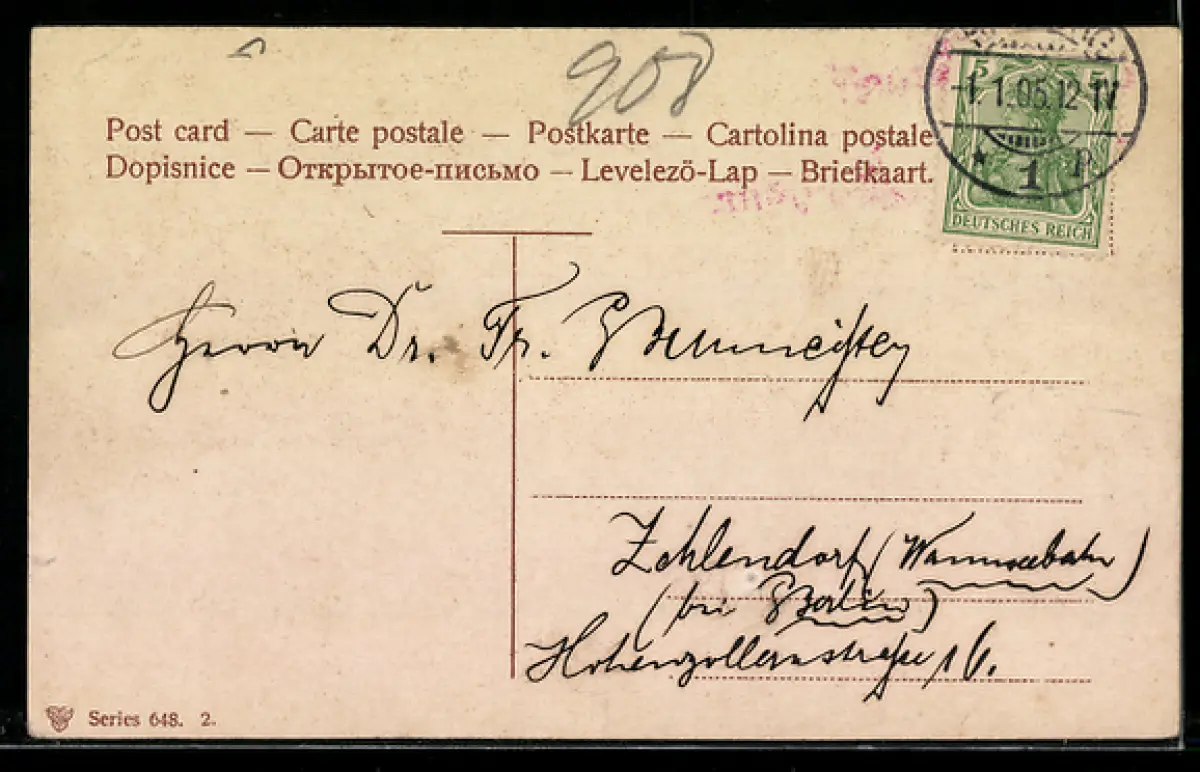 908
Post card — Carte postale — Postkarte — Cartolina postale.
Dopisnice — Открытое-письмо — Levelező-Lap — Briefkaart.
5 5
1.1.05.12-1V
* 1 P.
DEUTSCHES REICH
Herrn Dr. Fr. Burmeister
Zehlendorf (Wannseebahn)
(bei Berlin)
Hohenzollernstraße 16.
Series 648. 2.